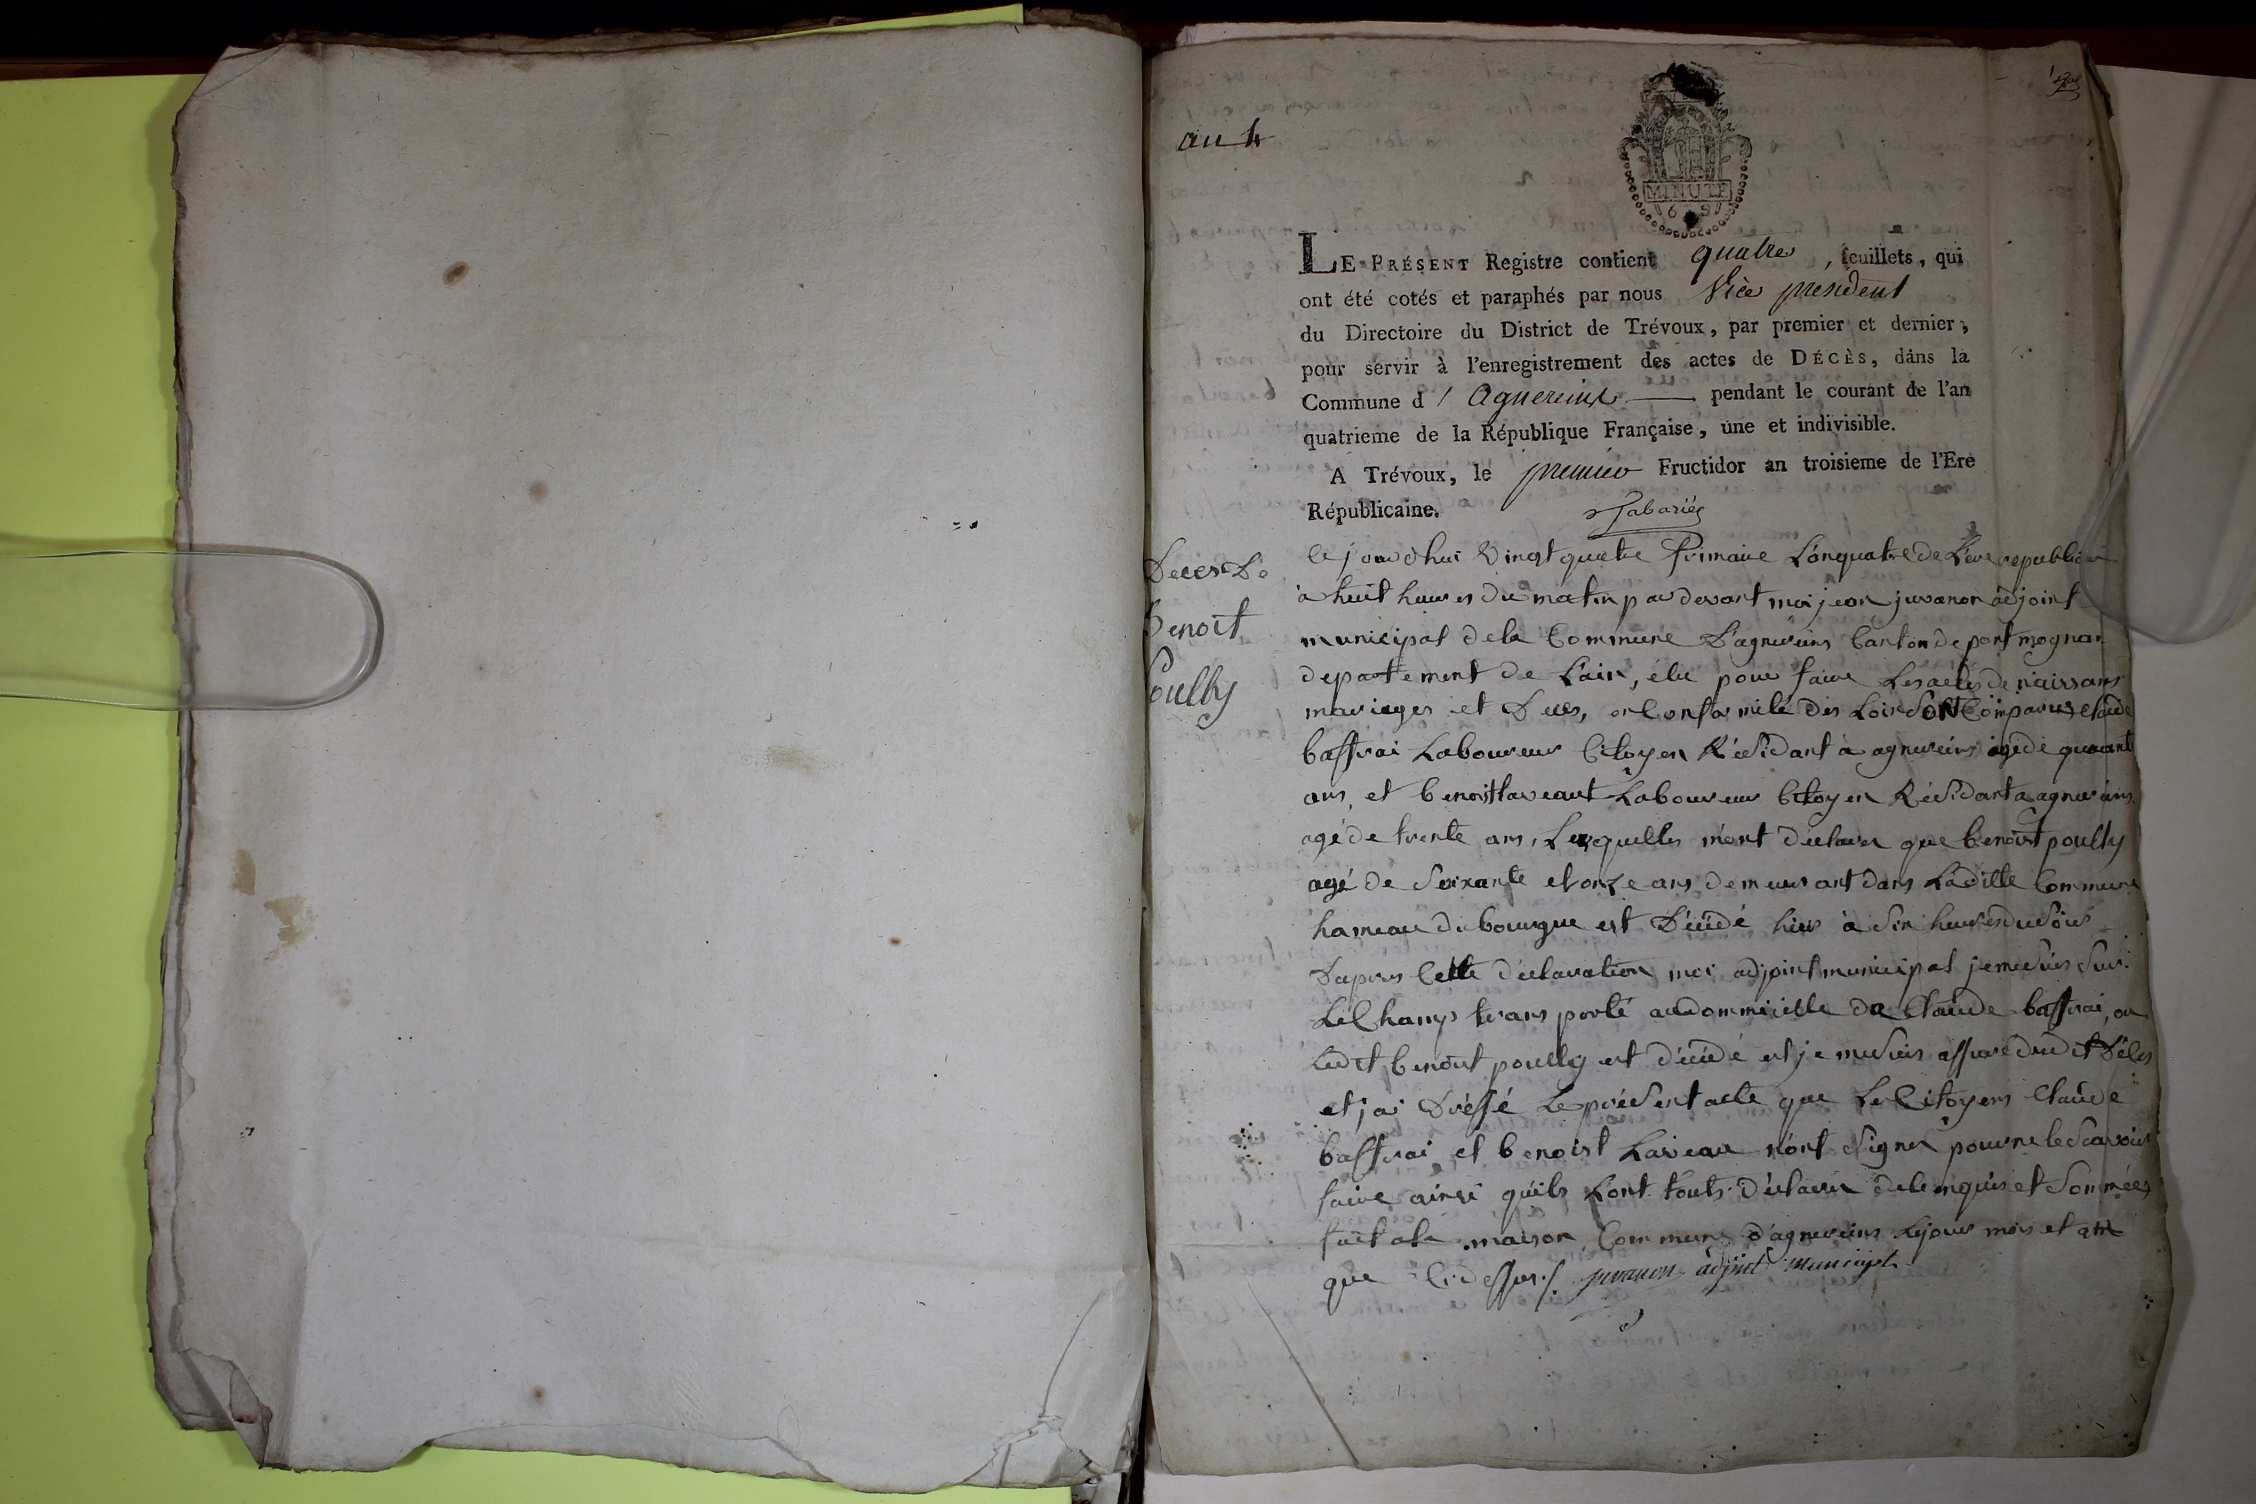 an 4
MINUTE
LE PRÉSENT Registre contient quatre, feuillets, qui
ont été cotés et paraphés par nous Vice president
du Directoire du District de Trévoux, par premier et dernier,
pour servir à l'enregistrement des actes de DÉCÈS, dans la
Commune d' Agnereins pendant le courant de l'an
quatrieme de la République Française, une et indivisible.
A Trévoux, le premier Fructidor an troisieme de l'Ere
Républicaine.
Deces De
Benoit
Poully
Ce jourdhui vingt quatre frimaire L'an quatre de L'ere republicaine
à huit heures du matin par devant moi jean juvanon adjoint
municipal de la Commune D'agnereins Canton de pont mognan
departement de L'ain, élu pour faire Les actes de naissans
mariages et Deces, en Conformité des Lois Sont Comparus Claude
baffrai Laboureur Citoyen Résidant à agnereins agé de quarant
ans, et benoist Laveaut Laboureur Citoyen Résidant a agnereins
agé de trente ans, Lesquelles m'ont déclarer que benoist poully
agé de Soixante et onze ans demeurant dans Laditte Commune
hameau du bourgue est Décédé hier à Six heures du Soir
D'apres Cette déclaration moi adjoint municipal je me Suis Sur
Le Champ transporté au dommicille de Claude baffrai, ou
Ledit benoist poully est décédé et je me Suis assuré dudit Déces
et j'ai Dressé Le présent acte que Le Citoyens Claude
baffrai et benoist Laveau n'ont Signer pour ne le Scavoir
faire ainsi quils L'ont touts déclarer de enquis et Sommées
fait a la maison Commune d'agnereins Le jour mois et an
que Ci dessus /. juvanon adjoint municipal